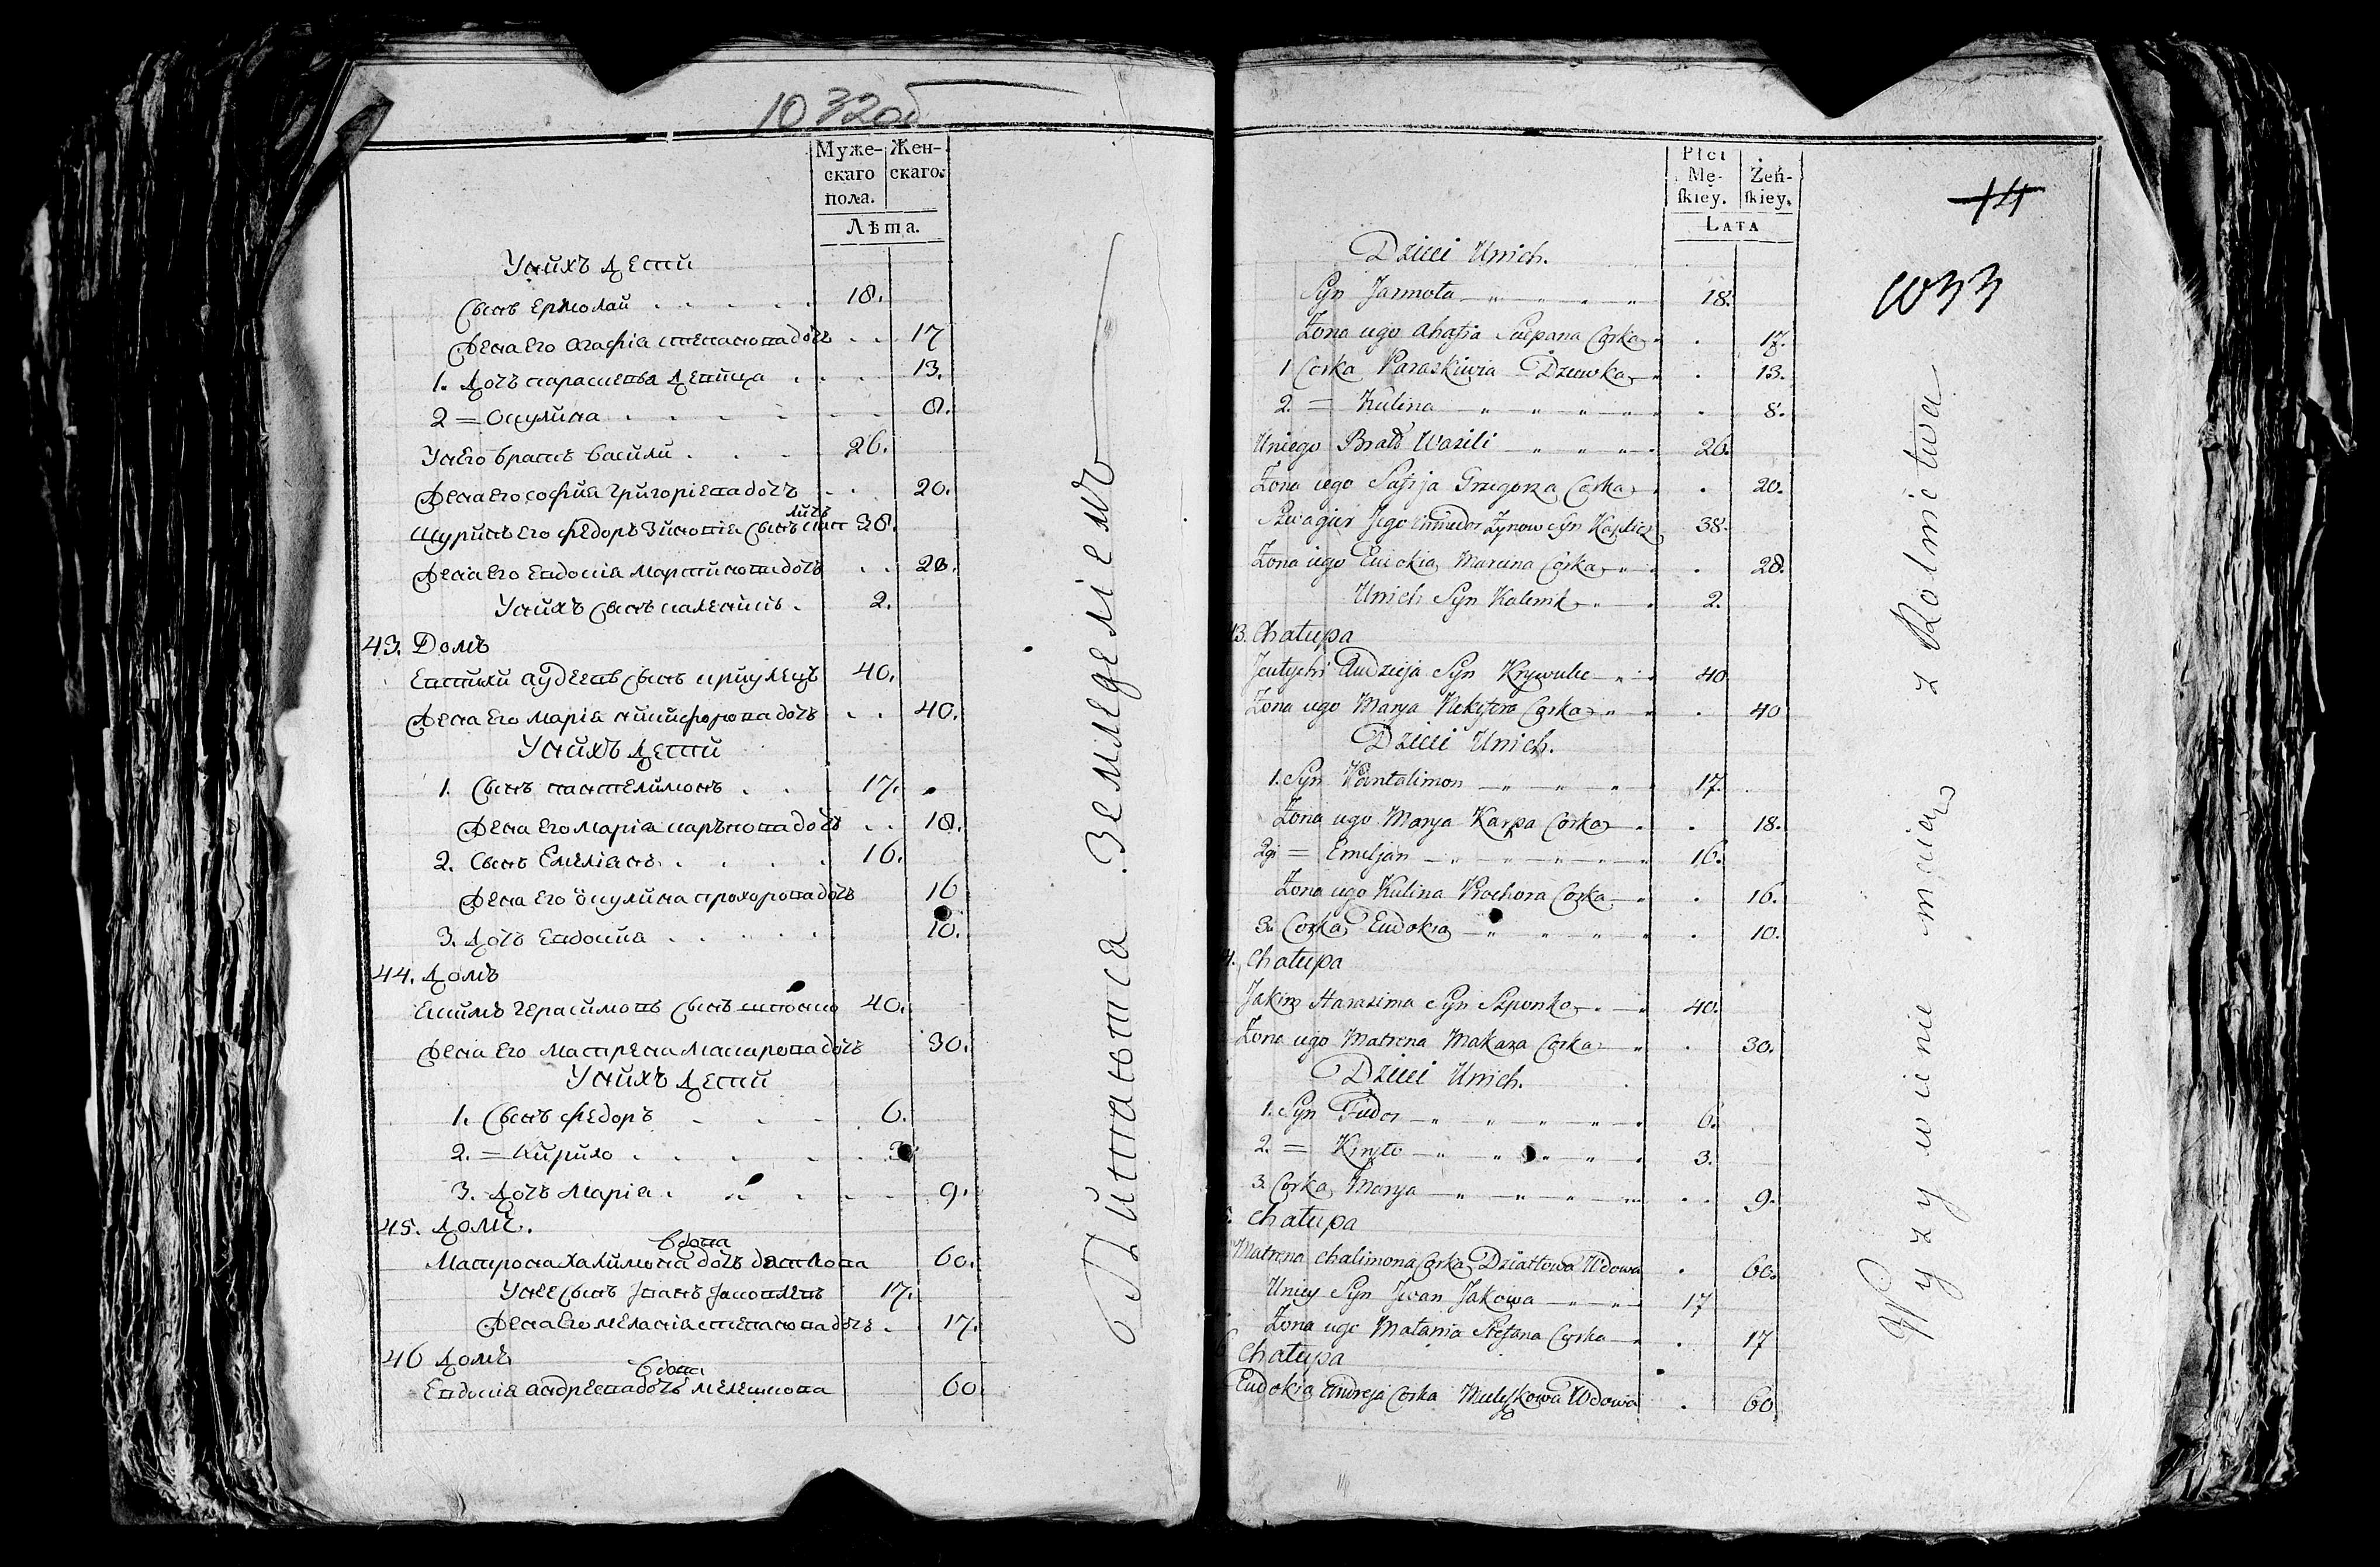 1032об
Муже- Жен-
скаго скаго.
пола.
Лѣта.
Унихъ дети
Сынъ Ермолай 18.
Жена Его Агафiа степанова дочь 17
1. Дочь параскевья Девица 13.
2 = Окулина 8.
Унего братъ Василий 26.
Жена его софия григорiева дочь 20.
Шуринъ его Федоръ Зиновiа Сынъ 38.
Жена Его Евдокiа Мартинова дочь 28.
Унихъ Сынъ каленикъ 2.
43. Домъ
Евтихи аудеевъ Сынъ кривулецъ 40.
Жена Его Марiа никифорова дочь 40.
Унихъ Дети
1. Сынъ пантелимонъ 17.
Жена Его марiа карпова дочь 18.
2. Сынъ Емелiанъ 16.
Жена Его окулина прохорова дочь 16
3. Дочь Евдокия 10.
44. Домъ
Екимъ Герасимовъ Сынъ шпонко 40.
Жена Его Матрена Макарова дочь 30.
Унихъ Дети
1. Сынъ Федоръ 6.
2. = Кирило 3
3. Дочь Марiа 9.
45. Домъ.
вдова
Матрона Халимона дочь дятлова 60.
Унее Сынъ Iванъ Iаковлевъ 17.
Жена Его меланiа степанова дочь 17.
46 Домъ
вдова
Евдокiа андреева дочь мелешкова 60
Питаютса Земледелiемъ
Płci
Mę- Żeń-
skiey. skiey.
LATA
14
1033
Dzieci Unich.
Syn Jarmoła 18.
Żona iego Ahafia Sciepana Corka 17.
1 Corka Paraskiwia Dziewka 13.
2. = Kulina 8.
Uniego Brat Wasili 26.
Żona iego Safija Grzegorza Corka 20.
Szwagier Jego Chwiedor Zynow Syn 38.
Żona iego Eudokia Marcina Corka 28.
Unich Syn Kalenik 2.
43. Chałupa
Jeutychi Audzieja Syn Krywulec 40
Żona iego Marya Nikifora Corka 40
Dzieci Unich.
1. Syn Pantalimon 17.
Żona iego Marya Karpa Corka 18.
2gi = Emeljan 16.
Żona iego Kulina Prochora Corka 16.
3. Corka Eudokia 10.
4. Chałupa
Jakim Harasima Syn Szponka 40.
Żona iego Matrena Makara Corka 30.
Dzieci Unich.
1. Syn Fiedor 6.
2. = Kiryło 3.
3. Corka Marya 9.
Chałupa
Matrena Chalimona Corka Dziatłowa Wdowa 60.
Uniey Syn Jwan Jakowa 17
Żona iego Małania Stefana Corka 17
6 Chałupa
Eudokia Andreja Corka Mieleszkowa Wdowa 60
Wyzywienie maią z Rolnictwa